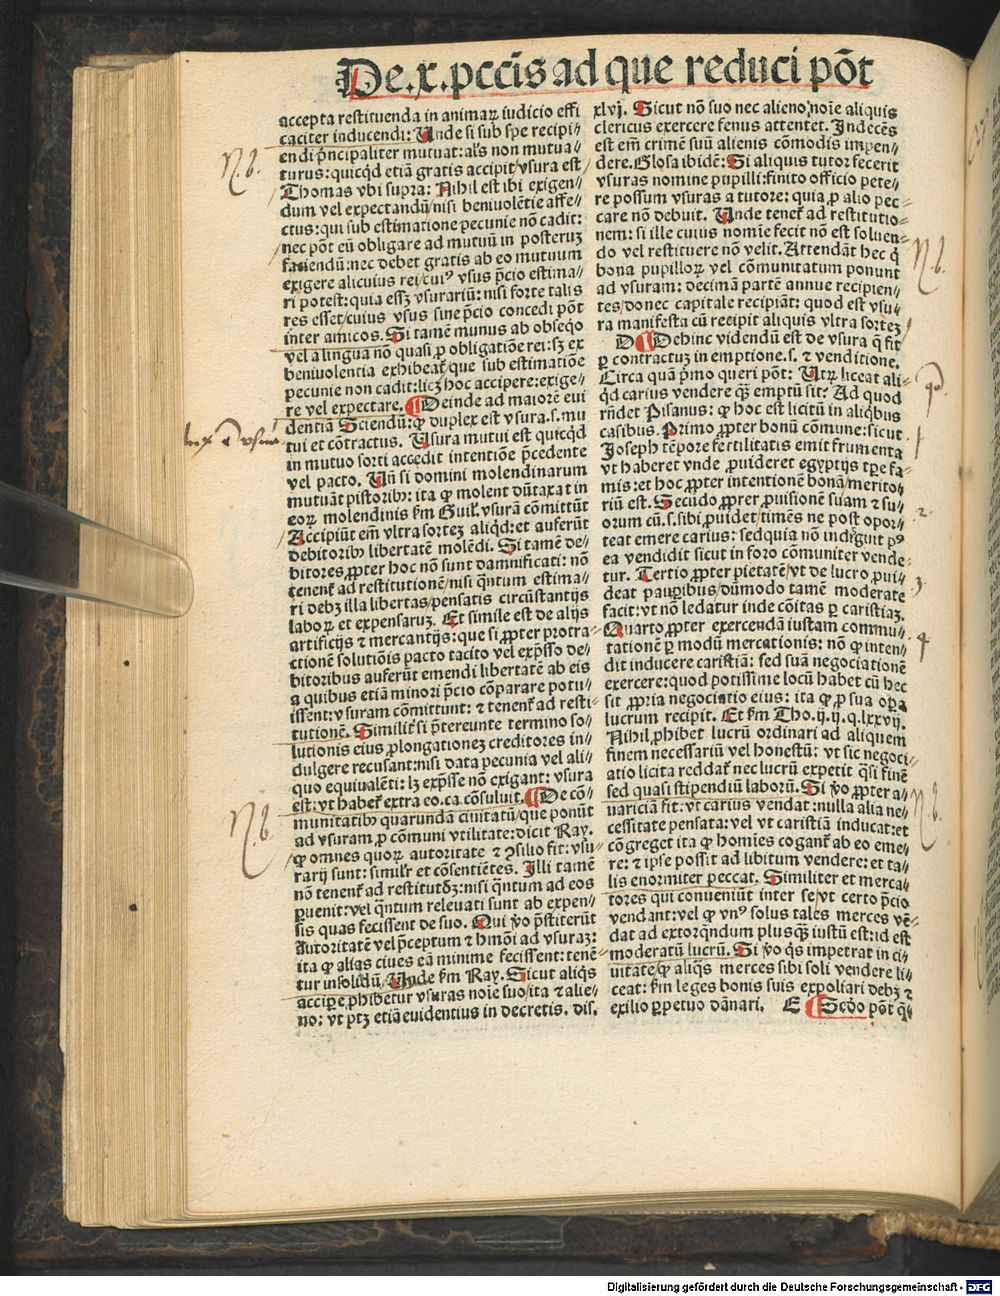 De.x.pccis ad que reduci põt
accepta restituenda in animaꝝ iudicio effi
caciter inducendi: Unde si sub spe recipi⸗
endi p̃ncipaliter mutuat: al̃s non mutua⸗
turus: quicq̃d etiã gratis accipit/vsura est
Thomas vbi supra: Nihil est ibi exigen⸗
dum vel expectandũ/nisi beniuolẽtie affe⸗
ctus: qui sub estimatione pecunie nõ cadit:
nec põt eũ obligare ad mutuũ in posteruꝫ
faciendũ: nec debet gratis ab eo mutuum
exigere alicuius rei/cuiꝰ vsus p̃cio estima⸗
ri potest: quia esſꝫ vsurariũ: nisi forte talis
res esset/cuius vsus sine p̃cio concedi põt
inter amicos. Si tamẽ munus ab obseqo
vel a lingua nõ quasi ꝓ obligatiõe rei: sꝫ ex
beniuolentia exhibeat̃ que sub estimatiõe
pecunie non cadit: licꝫ hoc accipere: exige⸗
re vel expectare. ¶ Deinde ad maiorẽ eui
dentiã Sciendũ: ꝙ duplex est vsura.s. mu
tui et cõtractus. Usura mutui est quicq̃d
in mutuo sorti accedit intentiõe p̃cedente
vel pacto. Uñ si domini molendinarum
mutuãt pistoribꝰ: ita ꝙ molent dũtaxat in
eoꝝ molendinis ẜm Guil̃. vsurã cõmittũt
Accipiũt em̃ vltra sorteꝫ aliq̃d: et auferũt
debitoribꝰ libertatẽ molẽdi. Si tamẽ de⸗
bitores ꝓpter hoc nõ sunt damnificati: nõ
tenent̃ ad restitutionẽ/nisi q̃ntum estima⸗
ri debꝫ illa libertas/pensatis circũstantijs
laboꝝ et expensaruꝫ. Et simile est de alijs
artificijs ⁊ mercantijs: que si ꝓpter protra⸗
ctionẽ solutiõis pacto tacito vel exp̃sso de⸗
bitoribus auferũt emendi libertatẽ ab eis
a quibus etiã minori p̃cio cõparare potu⸗
issent: vsuram cõmittunt: ⁊ tenent̃ ad resti⸗
tutionẽ. Similit̃ si p̃tereunte termino so⸗
lutionis eius ꝓlongationeꝫ creditores in⸗
dulgere recusant: nisi data pecunia vel ali⸗
quo equiualẽti: lꝫ exp̃sse nõ exigant: vsura
est: vt habet̃ extra eo.ca.cõsuluit. ¶ De cõ⸗
munitatibꝰ quarundã ciuitatũ/que ponũt
ad vsuram ꝓ cõmuni vtilitate: dicit Ray.
ꝙ omnes quoꝝ autoritate ⁊ ꝯsilio fit: vsu⸗
rarij sunt: simil̃r et cõsentiẽtes. Illi tamẽ
nõ tenent̃ ad restitutõꝫ: nisi q̃ntum ad eos
ꝑuenit: vel q̃ntum releuati sunt ab expen⸗
sis quas fecissent de suo. Qui ṽo p̃stiterũt
autoritatẽ vel p̃ceptum ⁊ hmõi ad vsuraꝫ:
ita ꝙ alias ciues eã minime fecissent: tenẽ⸗
tur insolidũ. Unde ẜm Ray. Sicut aliq̃s
accipere ꝓhibetur vsuras noĩe suo/ita ⁊ alie⸗
no: vt ptꝫ etiã euidentius in decretis. dis.
xlvij. Sicut nõ suo nec alieno noĩe aliquis
clericus exercere fenus attentet. Indecẽs
est em̃ crimẽ suũ alienis cõmodis impen⸗
dere. Glosa ibidẽ: Si aliquis tutor fecerit
vsuras nomine pupilli: finito officio pete⸗
re possum vsuras a tutore: quia ꝓ alio pec⸗
care nõ debuit. Unde tenet̃ ad restitutio⸗
nem: si ille cuius nomĩe fecit nõ est soluen⸗
do vel restituere nõ velit. Attendãt hec q̃
bona pupilloꝝ vel cõmunitatum ponunt
ad vsuram: decimã partẽ annue recipien⸗
tes/donec capitale recipiãt: quod est vsu⸗
ra manifesta cũ recipit aliquis vltra sorteꝫ
D ¶ Dehinc videndũ est de vsura q̃ fit
ꝑ contractuꝫ in emptione.s. ⁊ venditione.
Circa quã p̃mo queri põt: Utꝝ liceat ali⸗
q̃d carius vendere q̃ꝫ emptũ sit? Ad quod
rñdet Pisanus: ꝙ hoc est licitũ in aliq̃bꝰ
casibus. Primo ꝓpter bonũ cõmune: sicut
Joseph tẽpore fertilitatis emit frumenta
vt haberet vnde ꝓuideret egyptijs tꝑe fa⸗
mis: et hoc ꝓpter intentionẽ bonã/merito⸗
riũ est. Secũdo ꝓpter ꝓuisionẽ suam ⁊ su⸗
orum cũ.s. sibi ꝓuidet/timẽs ne post opor⸗
teat emere carius: sed quia nõ indiguit pꝰ
ea vendidit sicut in foro cõmuniter vende⸗
tur. Tertio ꝓpter pietatẽ/vt de lucro ꝓui⸗
deat pauꝑibus/dũmodo tamẽ moderate
facit: vt nõ ledatur inde cõitas ꝑ caristiaꝫ.
Quarto ꝓpter exercendã iustam commu⸗
tationẽ ꝑ modũ mercationis: nõ ꝙ inten⸗
dit inducere caristiã: sed suã negociationẽ
exercere: quod potissime locũ habet cũ hec
sit ꝓpria negociatio eius: ita ꝙ ꝓ sua oꝑa
lucrum recipit. Et ẜm Tho.ij.ij.q.lxxvij.
Nihil ꝓhibet lucrũ ordinari ad aliquem
finem necessariũ vel honestũ: vt sic negoci⸗
atio licita reddat̃ nec lucrũ expetit q̃si finẽ
sed quasi stipendiũ laborũ. Si ṽo ꝓpter a⸗
uariciã fit: vt carius vendat: nulla alia ne⸗
cessitate pensata: vel vt caristiã inducat: et
cõgreget ita ꝙ homĩes cogant̃ ab eo eme⸗
re: ⁊ ipse possit ad libitum vendere: et ta⸗
lis enormiter peccat. Similiter et merca⸗
tores qui conueniũt inter se/vt certo p̃cio
vendant: vel ꝙ vnꝰ solus tales merces vẽ⸗
dat ad extorq̃ndum plusq̃ꝫ iustũ est: id est
moderatũ lucrũ. Si ṽo q̃s impetrat in ci⸗
uitate/ꝙ aliq̃s merces sibi soli vendere li⸗
ceat: ẜm leges bonis suis expoliari debꝫ ⁊
exilio ꝑpetuo dãnari. E ¶ Scdo põt q̃⸗
N.b.
N.b.
N.b.
N.b.
1
2.
3.
4
Digitalisierung gefördert durch die Deutsche Forschungsgemeinschaft - DFG